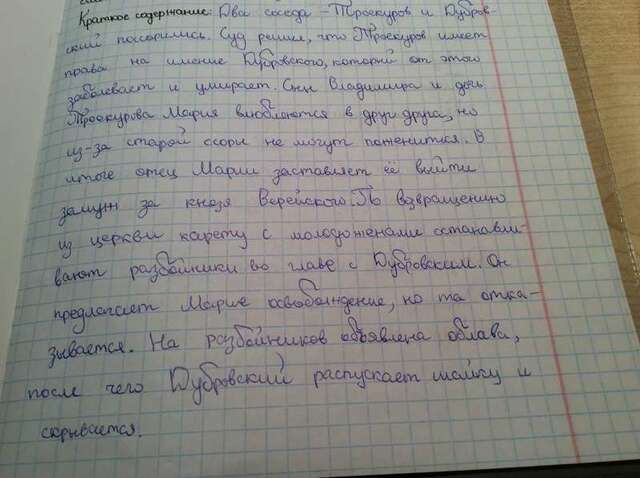 Краткое содержание: Два соседа - Троекуров и Дубров-
ский поссорились. Суд решил, что Троекуров имеет
права на имение Дубровского, который от этого
заболевает и умирает. Сын Владимира и дочь
Троекурова Мария влюбляются в друг друга, но
из-за старой ссоры не могут пожениться. В
итоге отец Марии заставляет её выйти
замуж за князя Верейского. По возвращению
из церкви карету с молодоженами останавли-
вают разбойники во главе с Дубровским. Он
предлагает Марие освобождение, но та отка-
зывается. На разбойников объявлена облава,
после чего Дубровский распускает шайку и
скрывается.